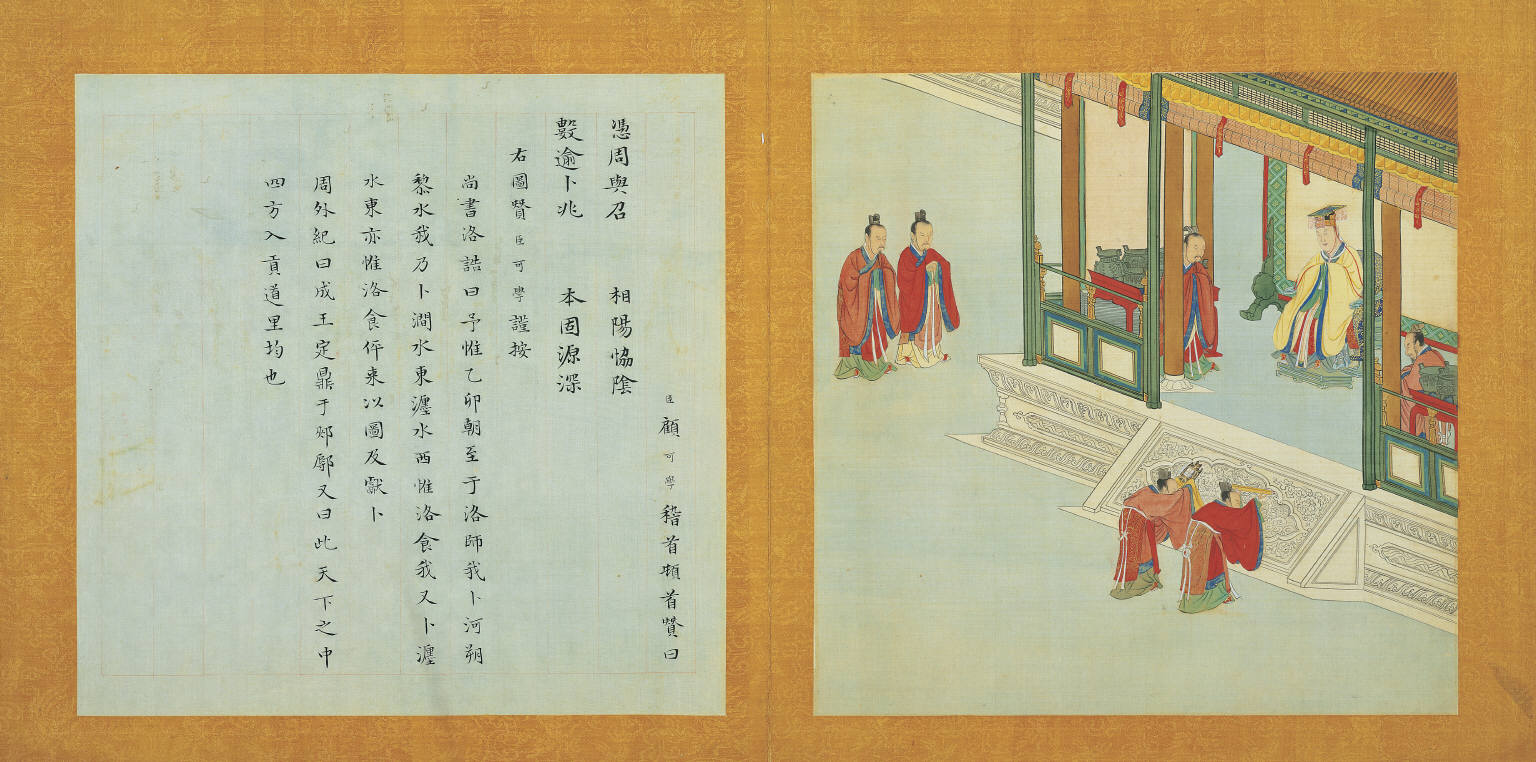 臣顧可學稽首頓首贊曰
憑周與召 相陽恊陰
數逾卜兆 本固源深
右圖贊臣可學謹按
尚書洛誥曰予惟乙卯朝至于洛師我卜河朔
黎水我乃卜澗水東瀍水西惟洛食我又卜瀍
水東亦惟洛食伻来以圖及獻卜
周外紀曰成王定鼎于郟鄏又曰此天下之中
四方入貢道里均也